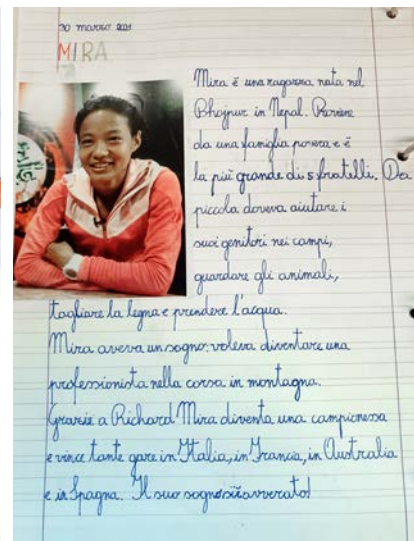 30 marzo 2021
MIRA
Mira è una ragazza nata nel
Bhojpur in Nepal. Proviene
da una famiglia povera e è
la più grande di 5 fratelli. Da
piccola doveva aiutare i
suoi genitori nei campi,
guardare gli animali,
tagliare la legna e prendere l'acqua.
Mira aveva un sogno: voleva diventare una
professionista nella corsa in montagna.
Grazie a Richard Mira diventa una campionessa
e vince tante gare in Italia, in Francia, in Australia
e in Spagna. Il suo sogno si è avverato!